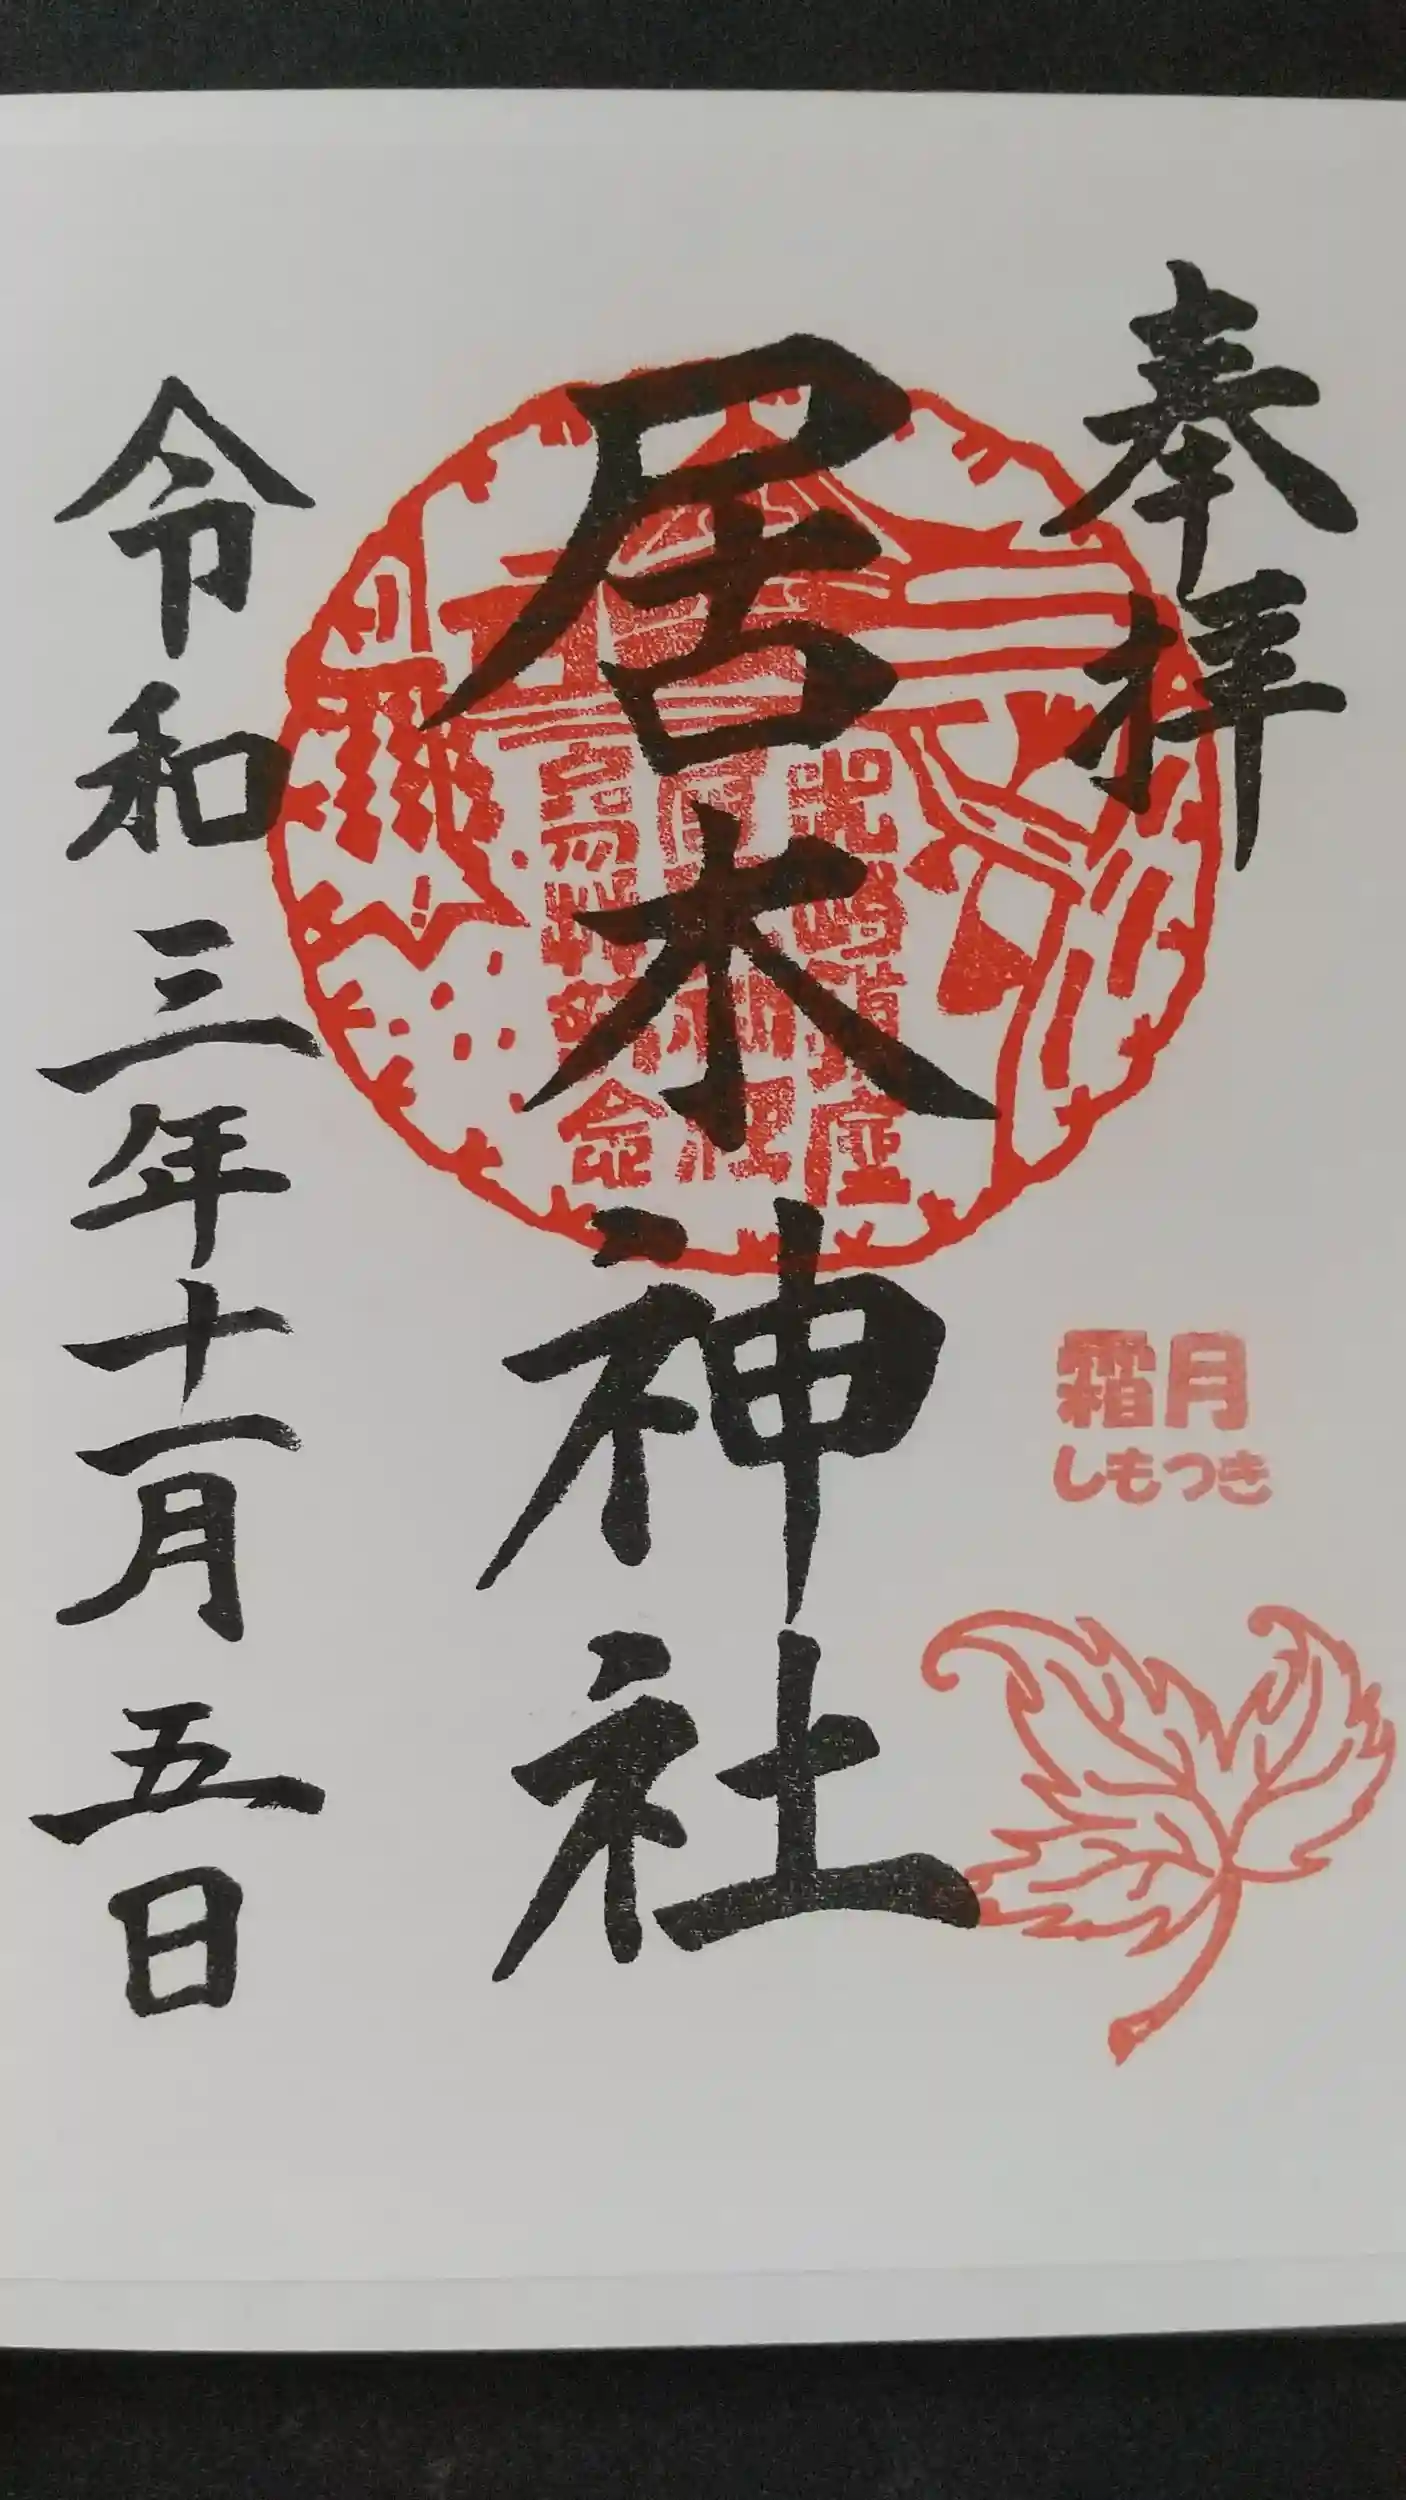 奉拝
霜月
しもつき
居木神社
令和三年十一月五日